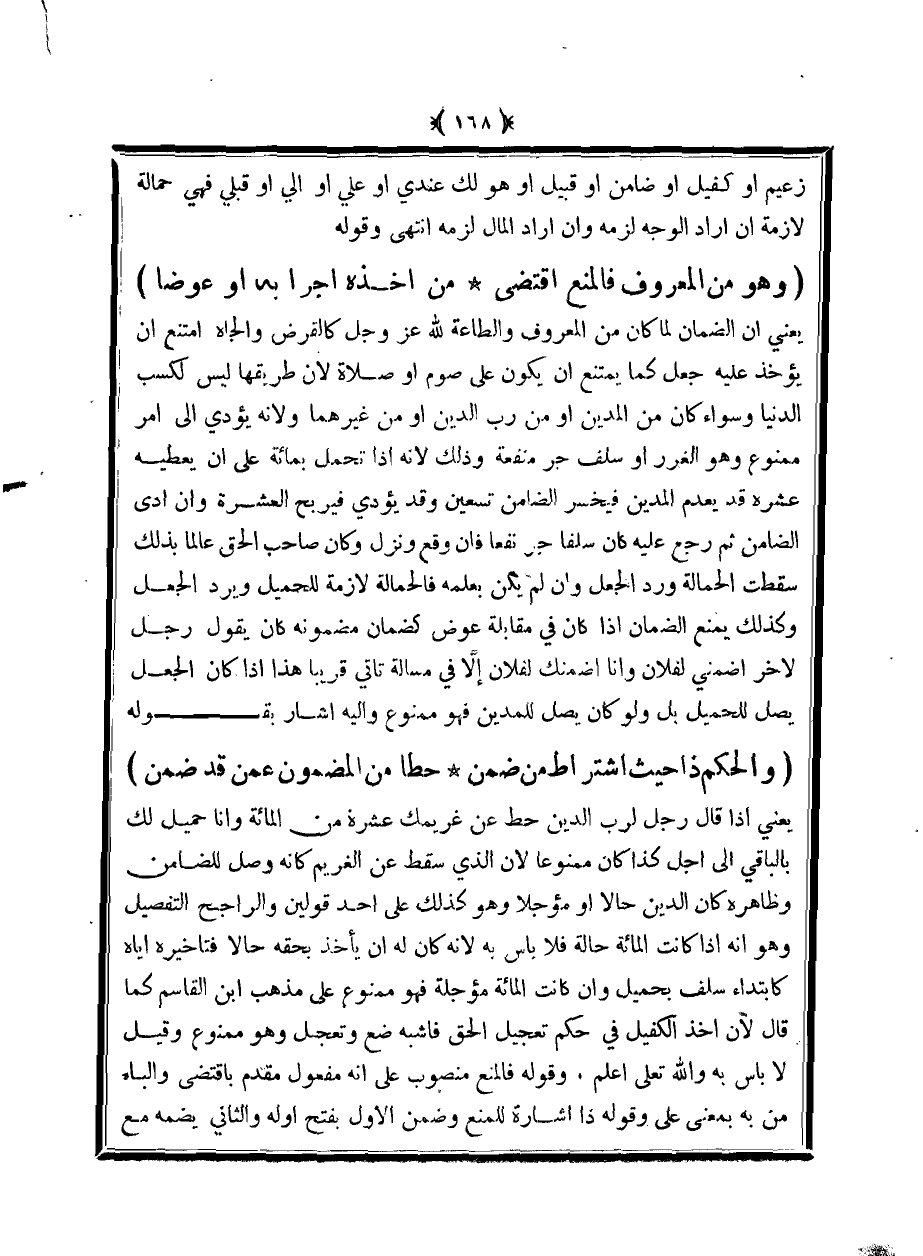 ﴿ ١٦٨ ﴾
زعيم او كفيل او ضامن او قبيل او هو لك عندي او علي او الي او قبلي فهي حمالة
لازمة ان اراد الوجه لزمه وان اراد المال لزمه انتهى وقوله
( وهو من المعروف فالمنع اقتضى * من اخـذه اجرا به او عوضا )
يعني ان الضمان لما كان من المعروف والطاعة لله عز وجل كالقرض والجاه امتنع ان
يؤخذ عليه جعل كما يمتنع ان يكون على صوم او صـلاة لان طريقها ليس لكسب
الدنيا وسواء كان من المدين او من رب الدين او من غيرهما ولانه يؤدي الى امر
ممنوع وهو الغرر او سلف جر منفعة وذلك لانه اذا تحمل بمائة على ان يعطيـه
عشره قد يعدم المدين فيخسر الضامن تسعين وقد يؤدي فيربح العشـرة وان ادى
الضامن ثم رجع عليه كان سلفا جر نفعا فان وقع ونزل وكان صاحب الحق عالما بذلك
سقطت الحمالة ورد الجعل وان لم يكن بعلمه فالحمالة لازمة للحميل ويرد الجعـل
وكذلك يمنع الضمان اذا كان في مقابلة عوض كضمان مضمونه كان يقول رجـل
لاخر اضمني لفلان وانا اضمنك لفلان إلّا في مسالة تاتي قريبا هذا اذا كان الجعـل
يصل للحميل بل ولو كان يصل للمدين فهو ممنوع واليه اشـار بقـــوله
( والحكم ذا حيث اشتراط من ضمن * حطا من المضمون عمن قد ضمن )
يعني اذا قال رجل لرب الدين حط عن غريمك عشرة من المائة وانا حميل لك
بالباقي الى اجل كذا كان ممنوعا لان الذي سقط عن الغريم كانه وصل للضـامن
وظاهره كان الدين حالا او مؤجلا وهو كذلك على احـد قولين والراجح التفصيل
وهو انه اذا كانت المائة حالة فلا باس به لانه كان له ان يأخذ بحقه حالا فتاخيره اياه
كابتداء سلف بحميل وان كانت المائة مؤجلة فهو ممنوع على مذهب ابن القاسم كما
قال لأن اخذ الكفيل في حكم تعجيل الحق فاشبه ضع وتعجـل وهو ممنوع وقيـل
لا باس به والله تعلى اعلم . وقوله فالمنع منصوب على انه مفعول مقدم باقتضى والبـاء
من به بمعنى على وقوله ذا اشـارة للمنع وضمن الاول بفتح اوله والثاني بضمه مـع